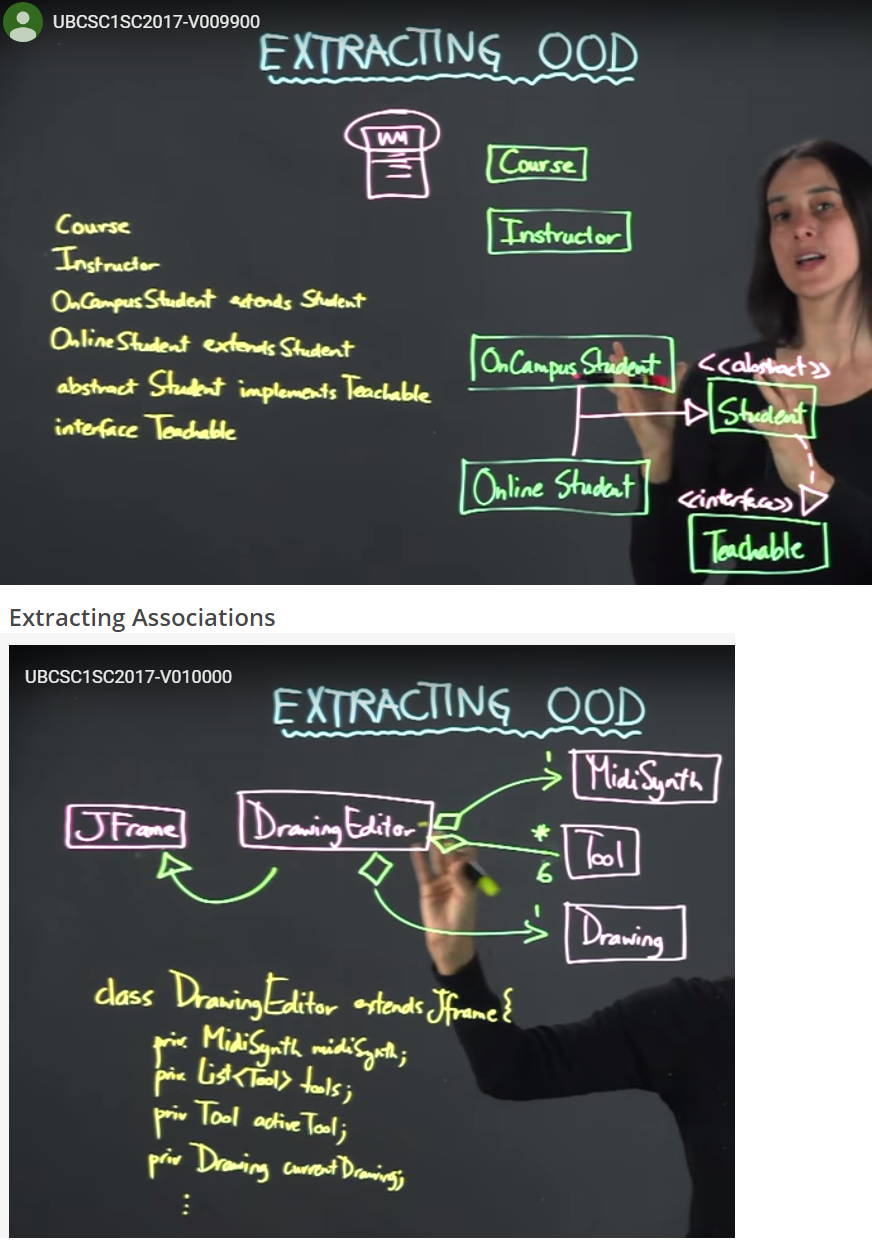 UBCSC1SC2017-V009900
EXTRACTING OOD
Course
Instructor
OnCampusStudent extends Student
OnlineStudent extends Student
abstract Student implements Teachable
interface Teachable
Course
Instructor
OnCampus Student
<<abstract>>
Student
Online Student
<<interface>>
Teachable
Extracting Associations
UBCSC1SC2017-V010000
EXTRACTING OOD
JFrame
DrawingEditor
1
MidiSynth
*
6
Tool
1
Drawing
class DrawingEditor extends Jframe {
priv. MidiSynth midiSynth;
priv. List<Tool> tools;
priv Tool activeTool;
priv Drawing currentDrawing;
⋮